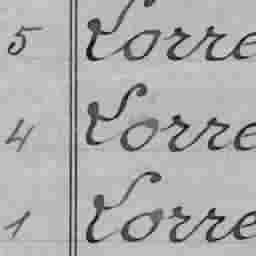 5 Lorre
4 Lorre
1 Lorre